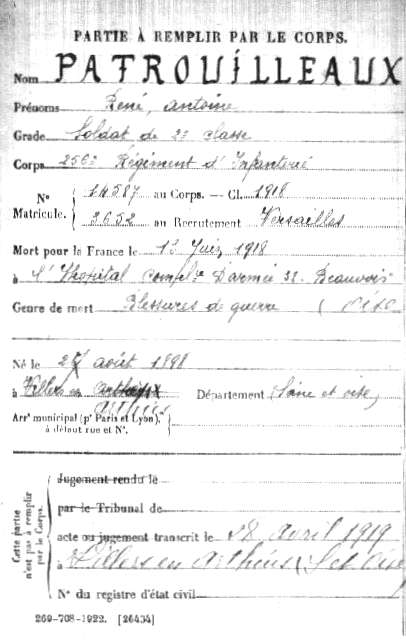 PARTIE À REMPLIR PAR LE CORPS.
Nom PATROUILLEAUX
Prénoms René, Antoine
Grade Soldat de 2e classe
Corps 256e Régiment d'Infanterie
N° Matricule. 14587 au Corps. — Cl. 1918
3652 au Recrutement Versailles
Mort pour la France le 13 Juin 1918
à l'Hopital Compl.re D'armée 38. Beauvois
Genre de mort Blessures de guerre ( Oise
Né le août 1898
à Villers en Arthies Département (Seine et oise)
Arrt municipal (pr Paris et Lyon).
à défaut rue et N°.
Cette partie n'est pas à remplir par le Corps.
Jugement rendu le
par le Tribunal de
acte ou jugement transcrit le 28 Avril 1919
à Villers en Arthies (S. et Oise
N° du registre d'état civil
269-708-1922. [26434]